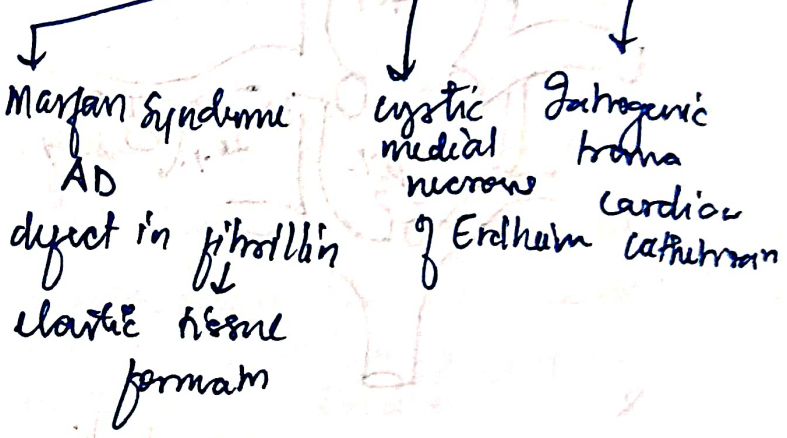 Marfan Syndrome
AD
defect in fibrillin
elastic tissue
formatn
cystic
medial
necrosis
of Erdheim
Iatrogenic
troma
cardiac